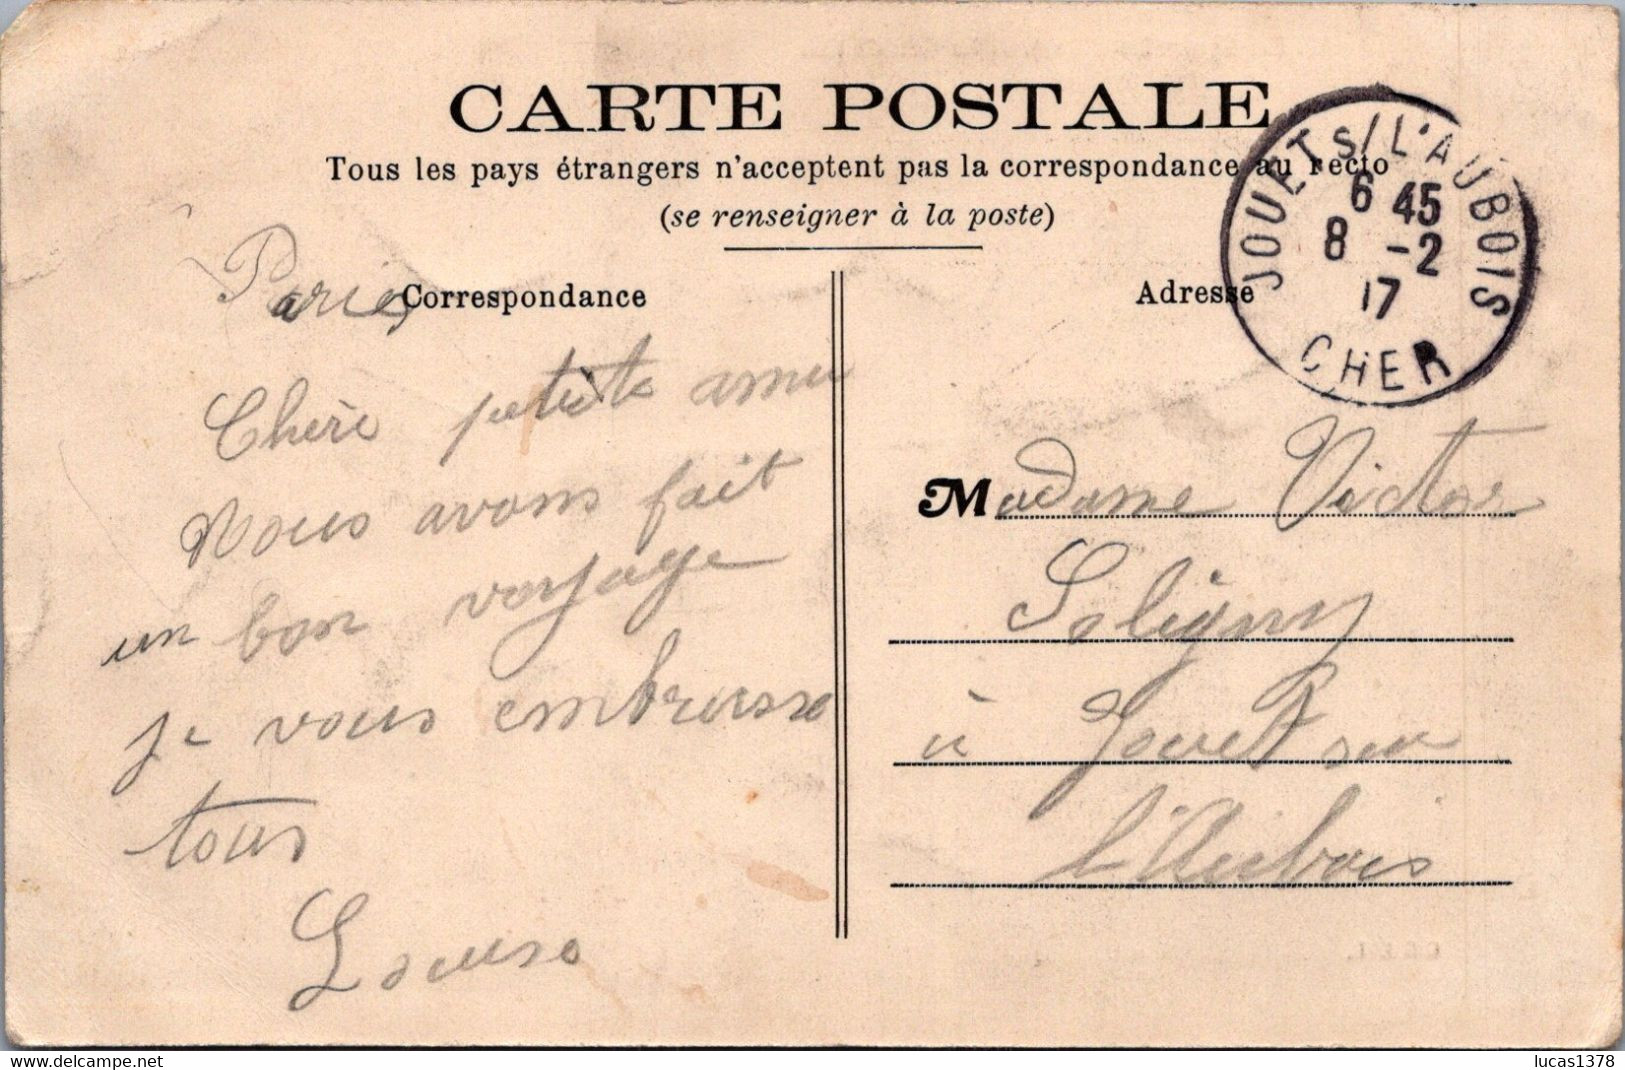 CARTE POSTALE
Tous les pays étrangers n'acceptent pas la correspondance au recto
(se renseigner à la poste)
JOUETS/L'AUBOIS
6 45
8 -2
17
CHER
Correspondance
Adresse
Paris
Chère petite amie
Nous avons fait
un bon voyage
je vous embrasse
tous
Louise
Madame Victor
Soligny
à Jouet sur
l'Aubois
www.delcampe.net
lucas1378